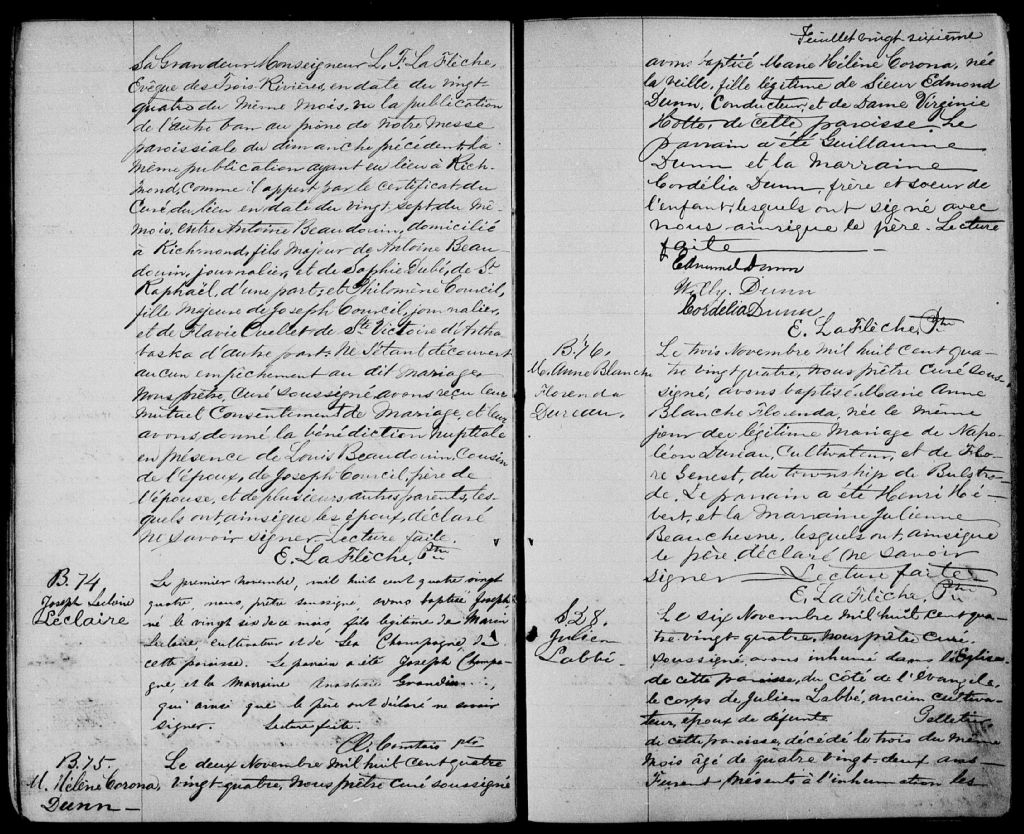 Sa Grandeur Monseigneur L. F. La Flèche,
Evêque des Trois-Rivières, en date du vingt-
quatre du même mois, vu la publication
de l'autre ban au prône de notre messe
paroissiale du dimanche précédent, la
même publication ayant eu lieu à Rich-
mond, comme il appert par le certificat du
Curé du lieu en date du vingt-sept du mê-
mois, entre Antoine Beaudouin, domicilié
à Richmond, fils majeur de Antoine Beau-
douin, journalier, et de Sophie Dubé, de St
Raphaël, d'une part; et Philomène Council,
fille majeure de Joseph Council, journalier,
et de Flavie Ouellet de Ste Victoire d'Artha-
baska d'autre part; ne s'étant découvert
aucun empêchement au dit mariage,
Nous prêtre, Curé soussigné, avons reçu leur
mutuel consentement de mariage, et leur
avons donné la bénédiction nuptiale
en présence de Louis Beaudouin, Cousin
de l'époux, de Joseph Council, père de
l'épouse, et de plusieurs autres parents, les-
quels ont, ainsi que les époux, déclaré
ne savoir signer. Lecture faite.
E. La Flèche, Ptre
B. 74
Joseph Leclaire
Leclaire
Le premier novembre, mil huit cent quatre vingt
quatre, nous, prêtre soussigné, avons baptisé Joseph
né le vingt six de ce mois, fils legitime de
Leclaire, cultivateur et de Léa Champagne, de
cette paroisse. Le parrain a été Joseph Champa-
gne, et la Marraine Anastasie
qui ainsi que le père ont déclaré ne savoir
signer. Lecture faite.
Comtois ptre
B. 75.
M. Hélène Corona
Dunn
Le deux Novembre mil huit cent quatre
vingt-quatre, Nous prêtre curé soussigné
Feuillet vingt-sixième
avons baptisé Marie Hélène Corona, née
la veille, fille légitime de Sieur Edmond
Dunn, Conducteur, et de Dame Virginie
Hotte, de cette paroisse. Le
parrain a été Guillaume
Dunn et la marraine
Cordélia Dunn, frère et soeur de
l'enfant, lesquels ont signé avec
nous ainsi que le père. Lecture
faite
Edmund Dunn
Willy. Dunn
Cordélia Dunn
E. La Flèche, Ptre
B. 76.
M. Anne Blanche
Florenda
Dureau.
Le trois Novembre mil huit cent qua-
tre vingt quatre, nous prêtre Curé sous-
signé, avons baptisé Marie Anne
Blanche Florenda, née le même
jour de légitime mariage de Napo-
léon Dureau, Cultivateur, et de Flo-
re Genest, du township de Bulstro-
de. Le parrain a été Henri Hé-
bert, et la Marraine Julienne
Beauchesne, lesquels ont ainsi que
le père déclaré ne savoir
signer Lecture faite
E. La Flèche, Ptre
S 28.
Julien
Labbé.
Le six Novembre mil huit cent qua-
tre vingt quatre, nous prêtre Curé
soussigné, avons inhumé dans l'Eglise
de cette paroisse, du côté de l'évangile,
le corps de Julien Labbé, ancien cultiva-
teur, époux de défunte
de cette paroisse, décédé le trois du même
mois âgé de quatre vingt-deux ans
Furent présents à l'inhumation les